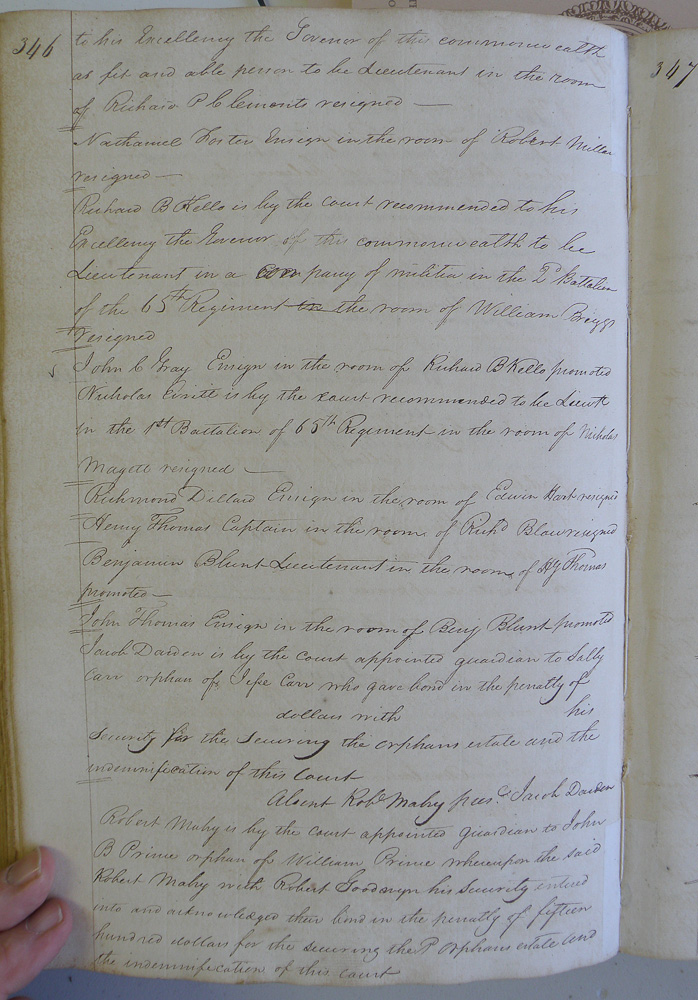 346
to his Excellency the Govenor of this commonwealth
as fit and able person to be Lieutenant in the room
of Richard P Clements resigned —
Nathaniel Foster Ensign in the room of Robert Miller
resigned —
Richard B Kello is by the court recommended to his
Excellency the Govenor of this commonwealth to be
Lieutenant in a company of militia in the 2d Battalion
of the 65th Regiment in the room of William Briggs
resigned
John C Gray Ensign in the room of Richard B Kello promoted
Nicholas is by the court recommended to be Lieut
in the 1st Battalion of 65th Regiment in the room of Nicholas
Magett resigned —
Richmond Dillard Ensign in the room of Edwin Hart resigned
Henry Thomas Captain in the room of Richd Blow resigned
Benjamin Blunt Lieutenant in the room of Hy Thomas
promoted —
John Thomas Ensign in the room of Benj Blunt promoted
Jacob Darden is by the court appointed guardian to Sally
Carr orphan of Carr who gave bond in the penalty of
dollars with his
Security for the Securing the orphans estate and the
indemnification of this Court
Absent Robt Mabry pres. Jacob Darden
Robert Mabry is by the court appointed guardian to John
B Prince orphan of William Prince whereupon the said
Robert Mabry with Robert Goodwyn his Security entered
into and acknowledged their bond in the penalty of fifteen
hundred dollars for the securing the orphans estate and
the indemnification of this court
347